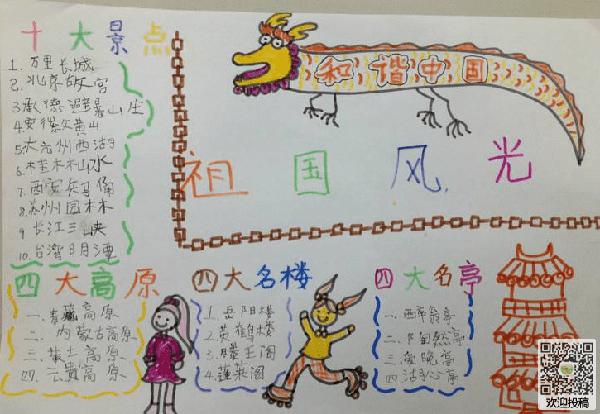 十大景点
1.万里长城
2.北京故宫
3承德避暑山庄
4安徽黄山
5.杭州西湖
6.桂林山水
7.西安兵马俑
8.苏州园林
9长江三峡
10.台湾日月潭
和谐中国
祖国风光
四大高原
一.青藏高原
二.内蒙古高原
三.黄土高原
四.云贵高原
四大名楼
1.岳阳楼
2.黄鹤楼
3.滕王阁
4.蓬莱阁
四大名亭
一.醉翁亭
三.爱晚亭
四.湖心亭
欢迎投稿